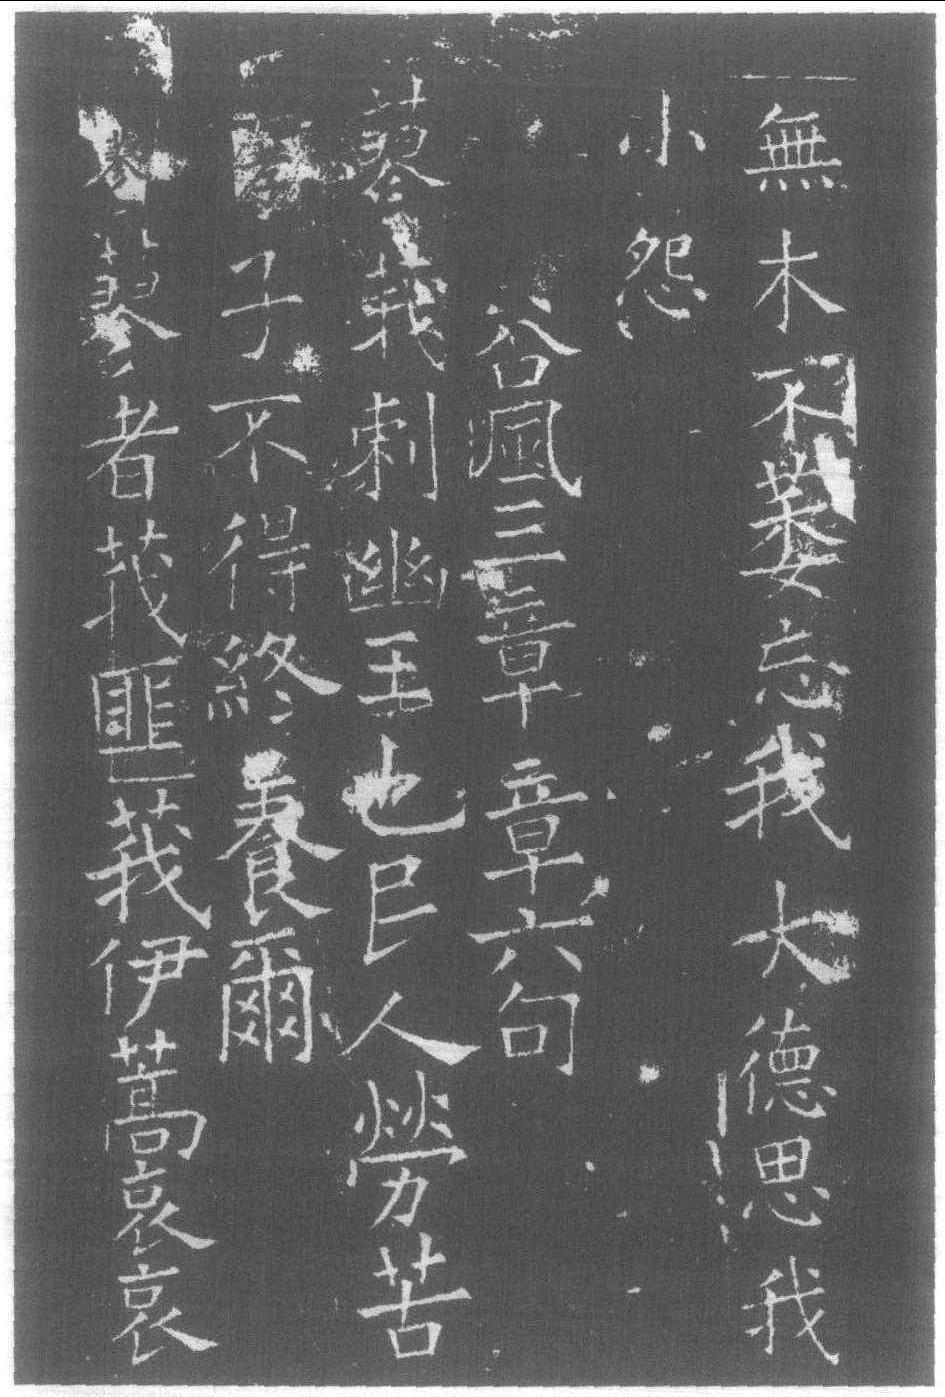 無木不萎忘我大德思我
小怨
谷風三章章六句
蓼莪刺幽王也民人勞苦
子不得終養爾
蓼蓼者莪匪莪伊蒿哀哀